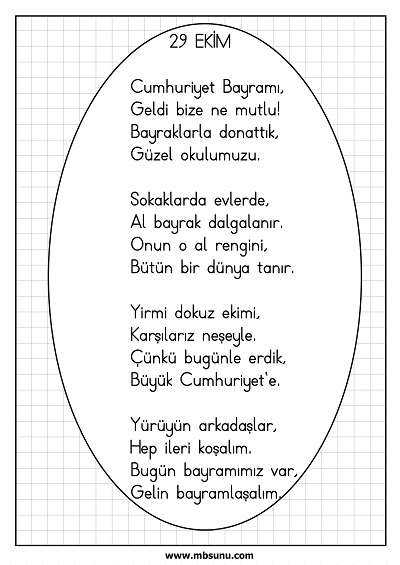 29 EKİM
Cumhuriyet Bayramı,
Geldi bize ne mutlu!
Bayraklarla donattık,
Güzel okulumuzu.
Sokaklarda evlerde,
Al bayrak dalgalanır.
Onun o al rengini,
Bütün bir dünya tanır.
Yirmi dokuz ekimi,
Karşılarız neşeyle.
Çünkü bugünle erdik,
Büyük Cumhuriyet'e.
Yürüyün arkadaşlar,
Hep ileri koşalım.
Bugün bayramımız var,
Gelin bayramlaşalım.
www.mbsunu.com